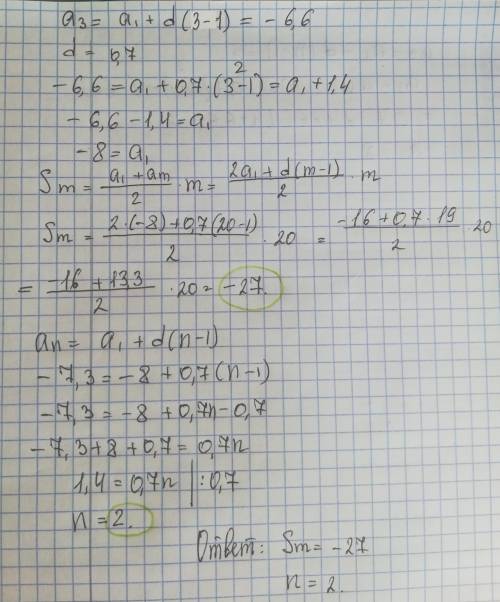 a₃ = a₁ + d(3-1) = -6,6
d = 0,7
-6,6 = a₁ + 0,7·(3-1) = a₁ + 1,4
2
-6,6 - 1,4 = a₁
-8 = a₁
Sm = (a₁ + am)/2 · m = (2a₁ + d(m-1))/2 · m
Sm = (2·(-8) + 0,7(20-1))/2 · 20 = (-16 + 0,7·19)/2 · 20
= (-16 + 13,3)/2 · 20 = -27.
an = a₁ + d(n-1)
-7,3 = -8 + 0,7(n-1)
-7,3 = -8 + 0,7n - 0,7
-7,3 + 8 + 0,7 = 0,7n
1,4 = 0,7n | :0,7
n = 2.
Ответ: Sm = -27
n = 2.